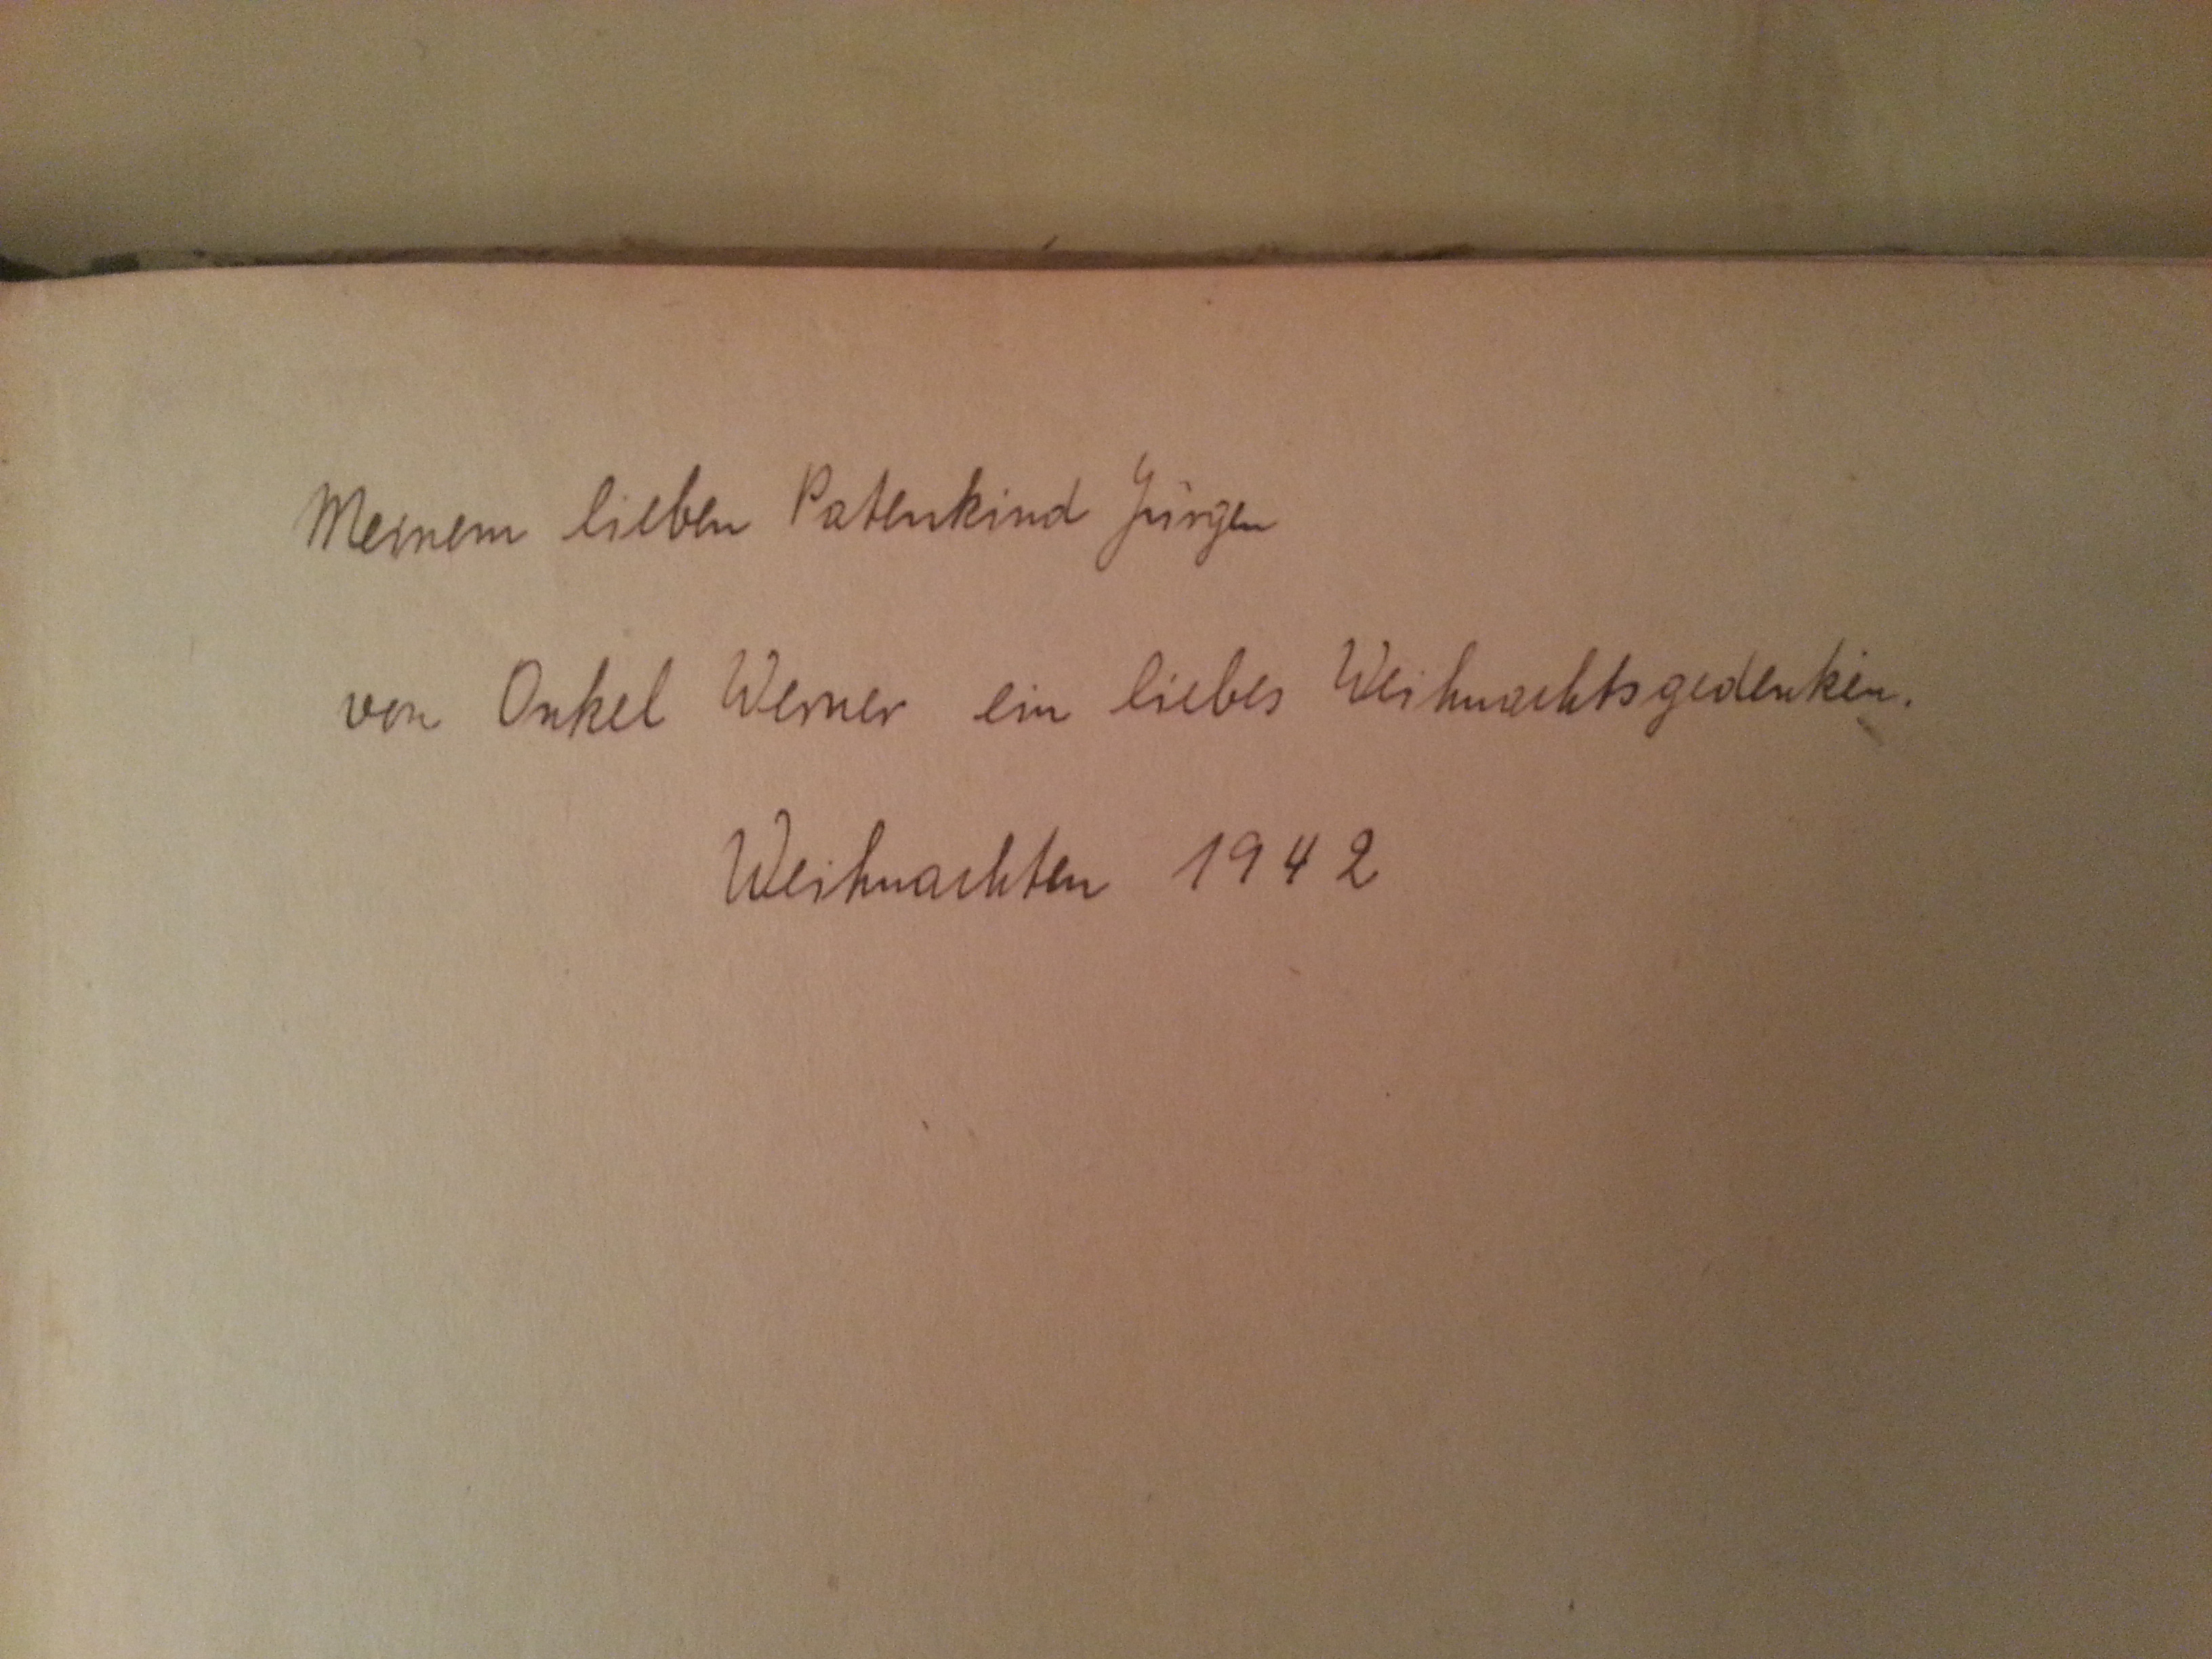 Meinem lieben Patenkind Jürgen
von Onkel Werner ein liebes Weihnachtsgedenken.
Weihnachten 1942